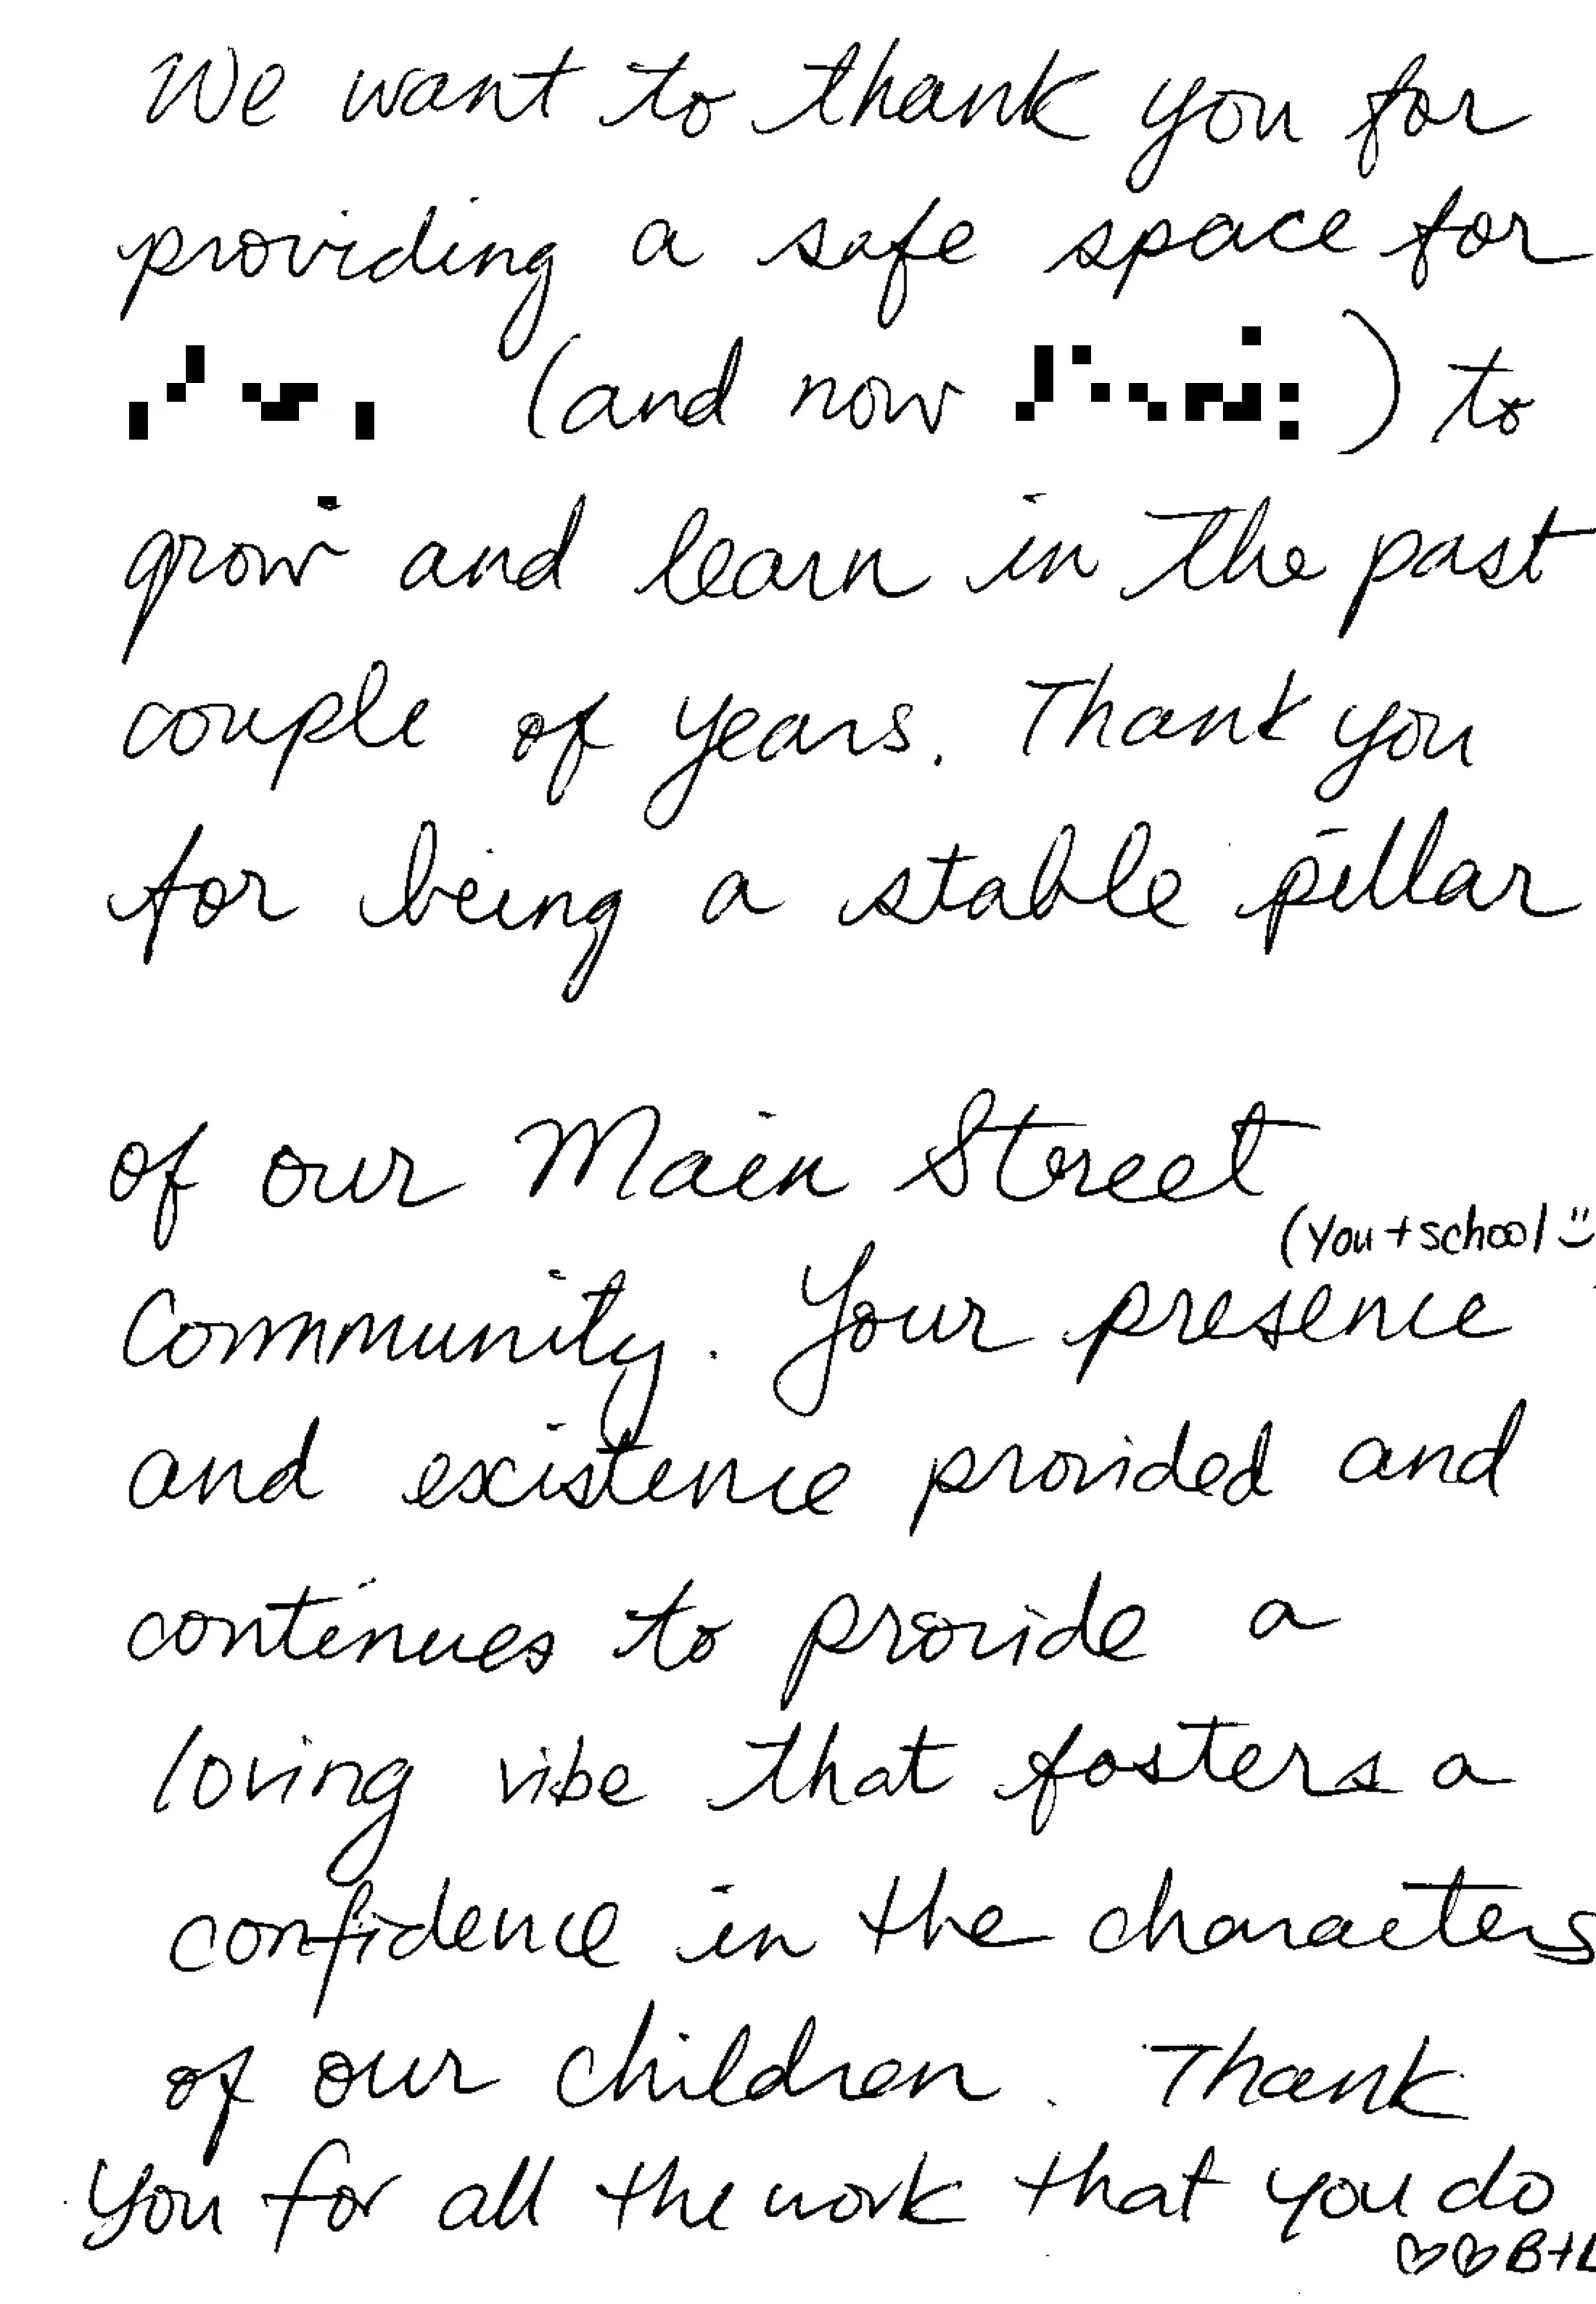 We want to thank you for
providing a safe space for
(and now ) to
grow and learn in the past
couple of years. Thank you
for being a stable pillar
of our Main Street
(you + school :)
Community. Your presence
and existence provided and
continues to provide a
loving vibe that fosters a
confidence in the characters
of our children. Thank
you for all the work that you do
♡♡ B+